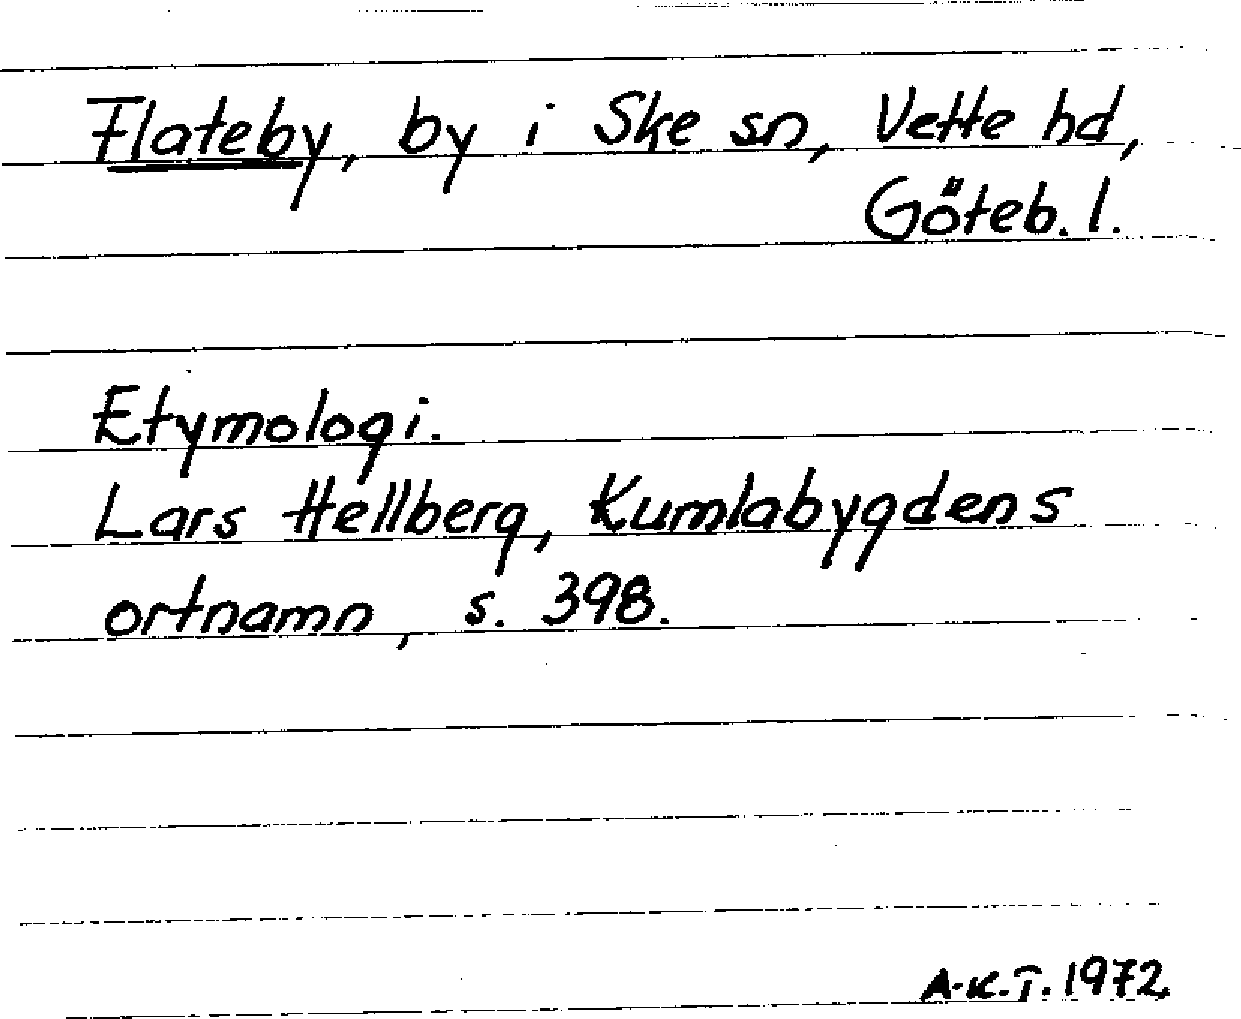 Flateby, by i Skee sn, Vette hd,
Göteb. l.
Etymologi.
Lars Hellberg, Kumlabygdens
ortnamn, s. 398.
A.K.T. 1972